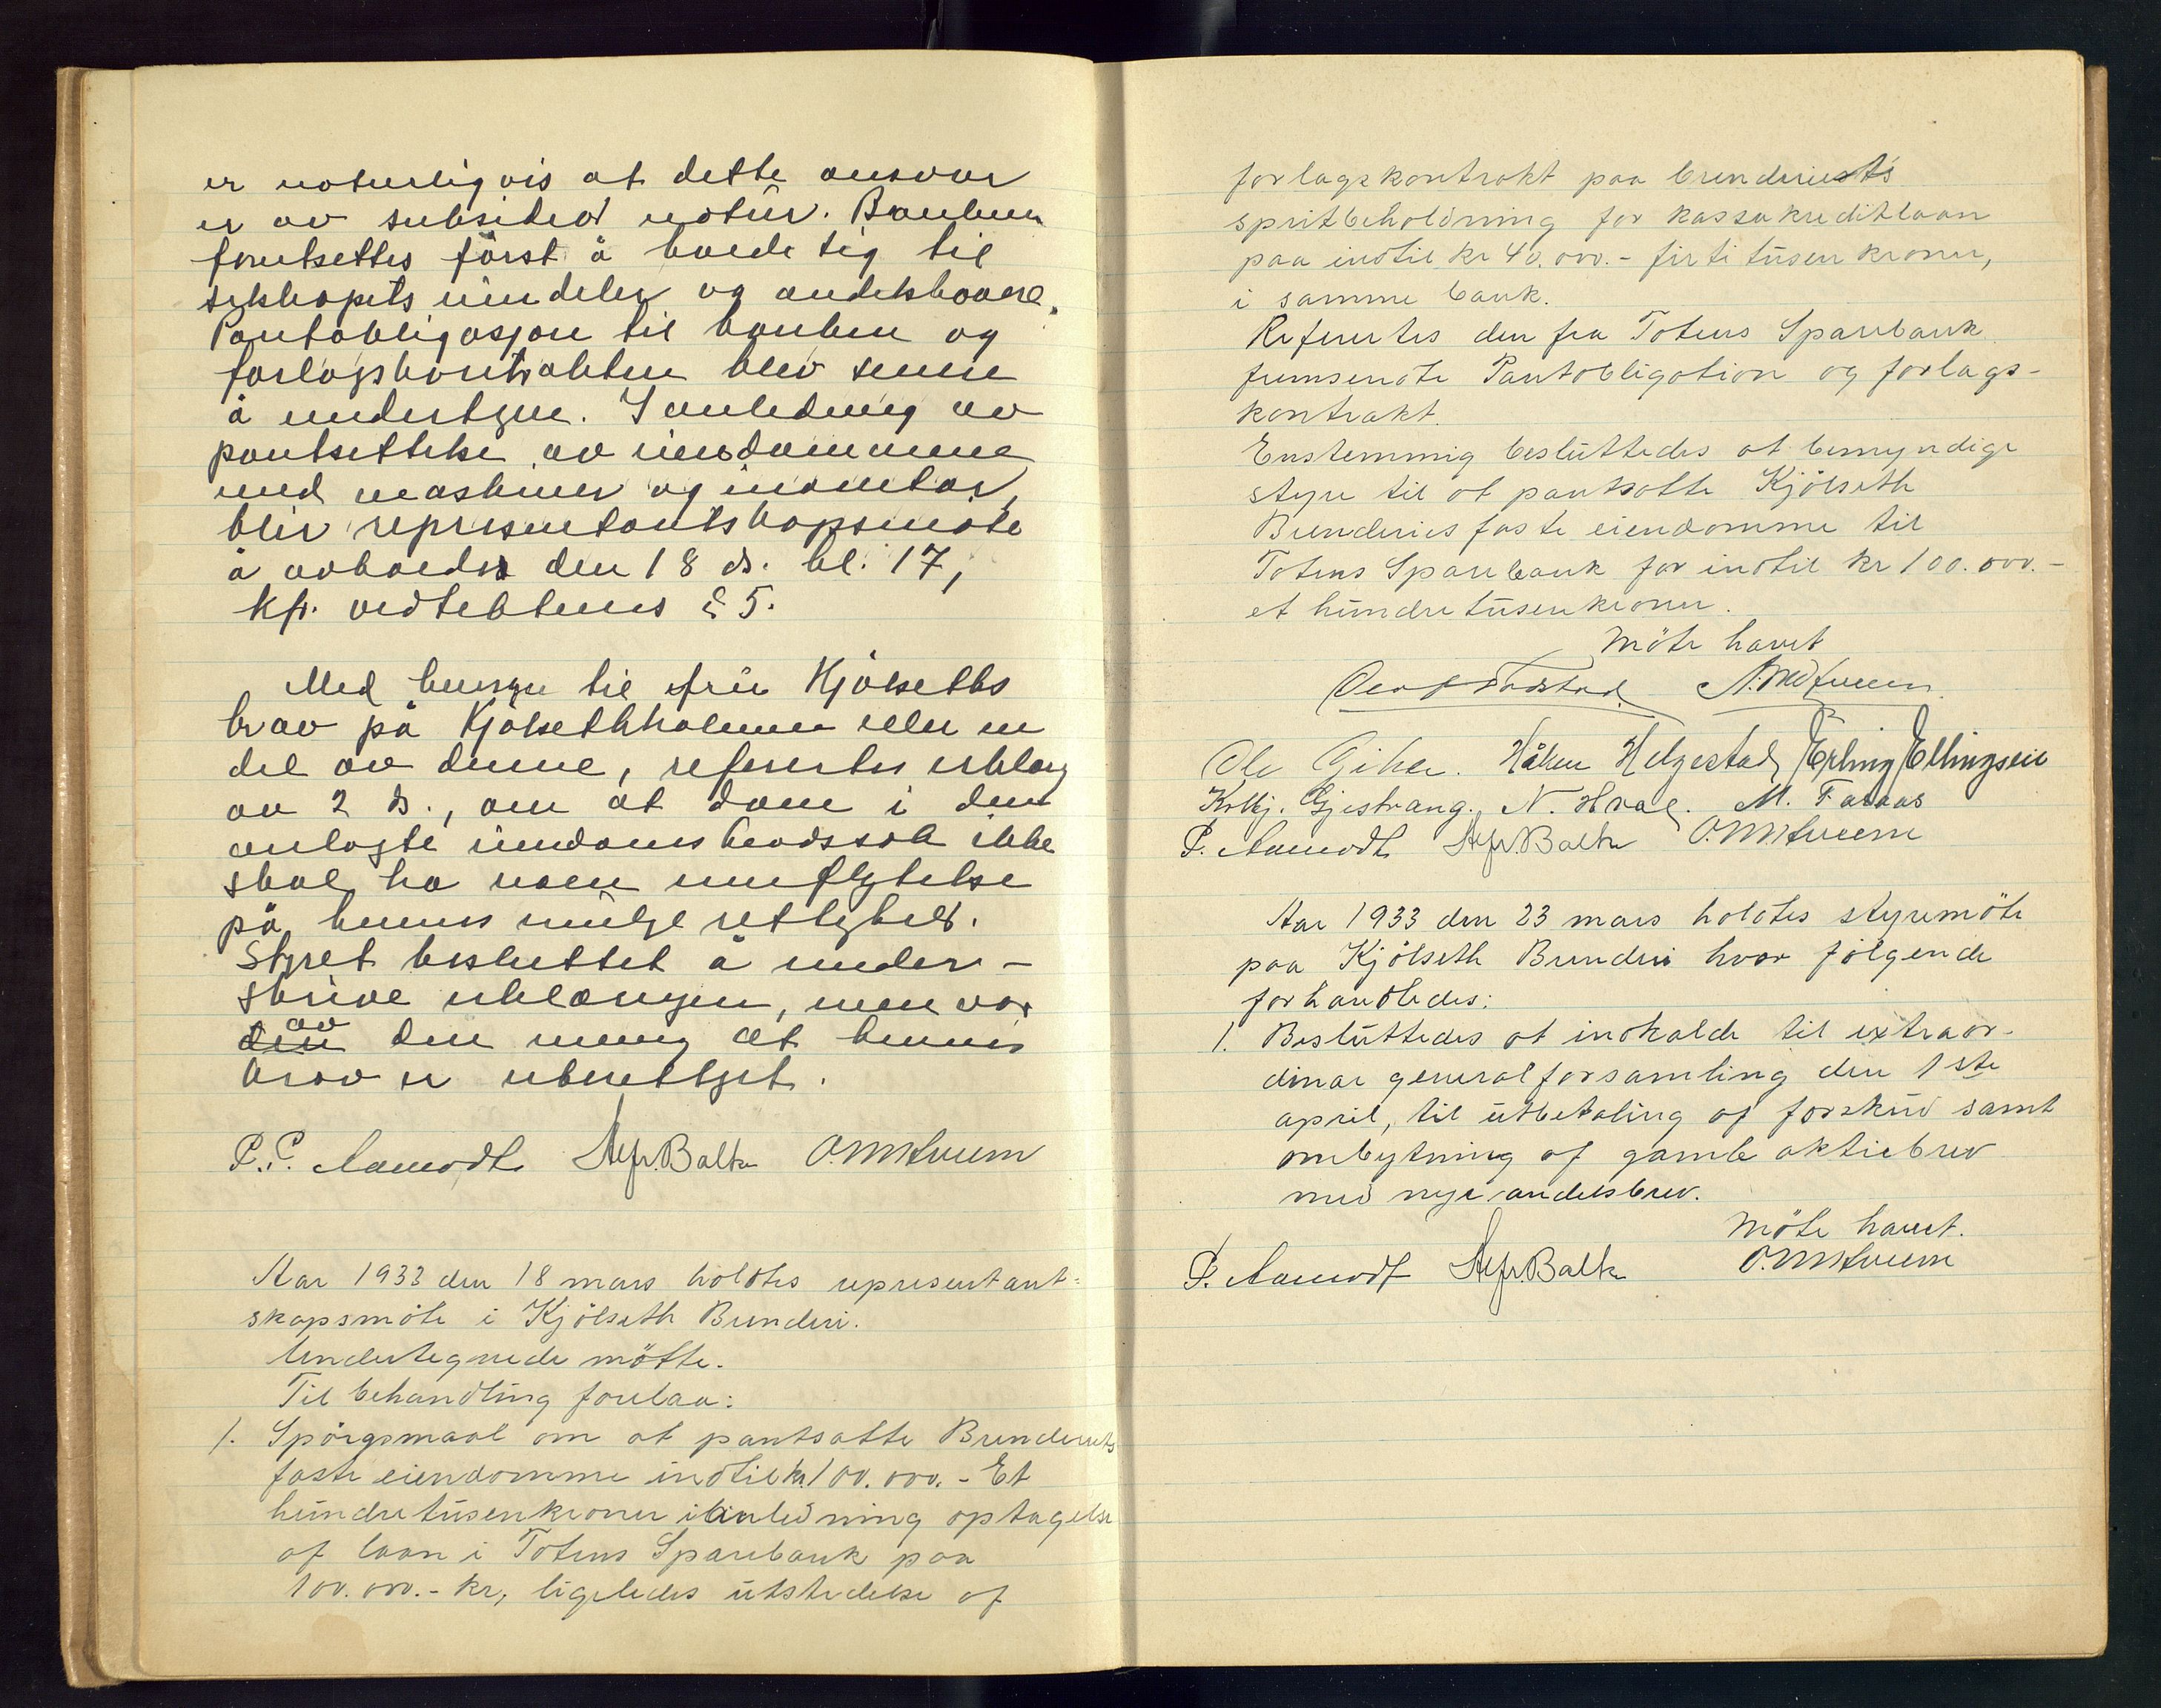 er naturligvis at dette ansvar
er av subsidiær natur. Banken
forutsettes først å holde sig til
selskapets eiendeler og andelshavere.
Pantobligasjon til banken og
forlagskontrakten blev senere
å undertegne. I anledning av
pantsettelse av eiendommene
med maskiner og inventar,
blir representantskapsmøte
å avholdes den 18 ds. kl. 17,
kfr. vedtektenes § 5.
Med hensyn til fru Kjølseths
krav på Kjølsethholmen eller en
del av denne, refereres erklæring
av 2 ds., om at dom i den
anlagte eiendomshevdssak ikke
skal ha noen innflytelse
på hennes mulige rettighet.
Styret besluttet å under-
skrive erklæringen, men var
den av den mening at hennes
krav er uberettiget.
P. P. Aamodt Alfr. Balke O. M. Kureem
Aar 1933 den 18 mars holdtes representant-
skapsmöte i Kjölseth Brenderi.
Undertegnede mötte.
Til behandling forelaa:
1. Spörgsmaal om at pantsatte Brenderiets
faste eiendomme indtil kr 100.000.- Et
hundre tusen kroner i anledning optagelse
af laan i Totens Sparebank paa
100.000.- kr, ligeledes utstedelse af
forlagskontrakt paa brenderiets
spritbeholdning for kassakreditlaan
paa indtil kr 40.000.- firti tusen kroner,
i samme bank.
Refertes den fra Totens Sparebank
fremsendte Pantobligation og forlags-
kontrakt.
Enstemmig besluttedes at bemyndige
styre til at pantsatte Kjölseth
Brenderies faste eiendomme til
Totens Sparebank for indtil kr 100.000.-
et hundre tusen kroner.
Möte hævet
Ole Giher. Håken Helgestad Erling Ellingsen
Kolbj. Gjestvang. N. Hval. M. Faraas
P. Aamodt Alfr. Balke
Aar 1933 den 23 mars holdtes styremöte
paa Kjölseth Brenderi hvor fölgende
forhandledes:
1. Besluttedes at indkalde til extraor-
dinar generalforsamling den 1ste
april, til utbetaling af forskud samt
ombytning af gamle aktiebrev
med nye andelsbrev.
Möte hævet.
P. Aamodt Alfr. Balke